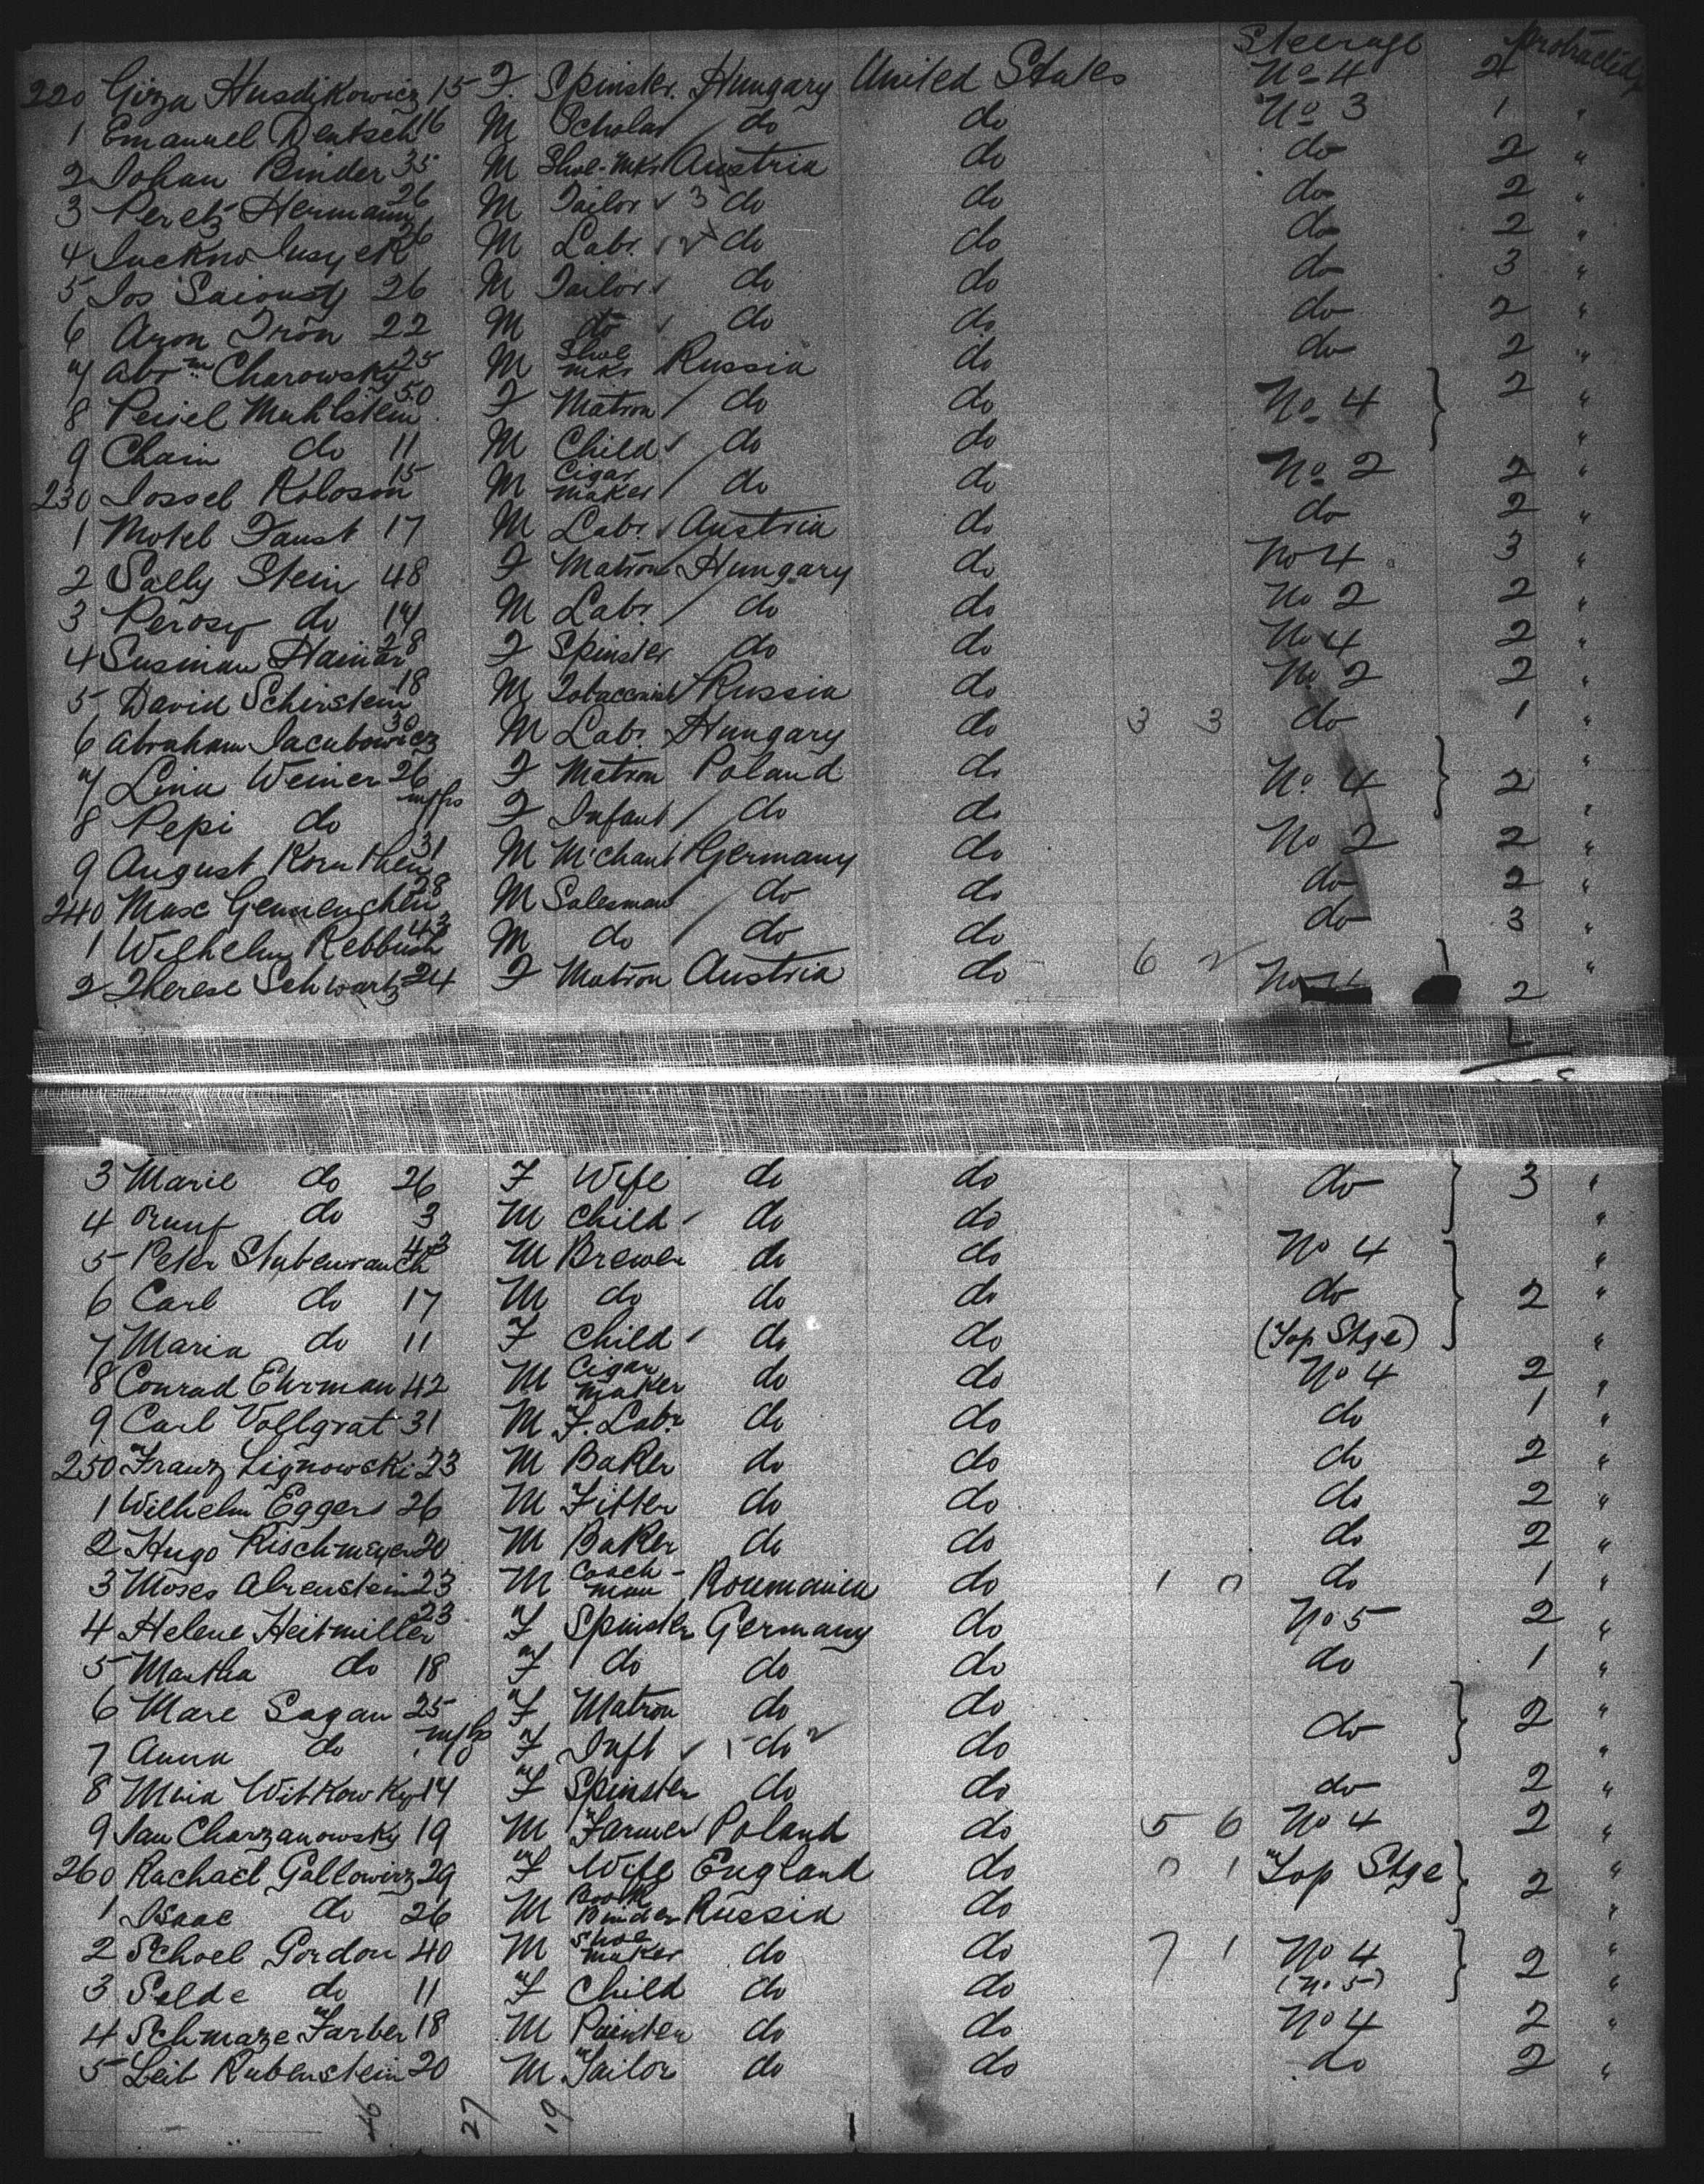 Steerage protracted
220 Giza Husdikowicz 15 F. Spinster. Hungary United States No 4 2
1 Emanuel Deutsch 16 M Scholar do do No 3 1 "
2 Johan Binder 35 M Shoe-mkr Austria do do 2 "
3 Peretz Hermann 26 M Tailor 3 do do do 2 "
4 26 M Labr. do do do 2 "
5 Jos 26 M Tailor do do do 3 "
6 Aron Tron 22 M do do do do 2 "
7 Abrm Charowsky 25 M Shoe mkr Russia do do 2 "
8 Peisel Muhlstein 50 F Matron do do No 4 } 2
9 Chain do 11 M Child do do "
230 Jossel Koloson 15 M Cigar maker do do No 2 2 "
1 Motel Faust 17 M Labr. Austria do do 2 "
2 Sally Stein 48 F Matron Hungary do No 4 3 "
3 Perosy do 14 M Labr. do do No 2 2 "
4 Susman Hainar 28 F Spinster do do No 4 2 "
5 David Scherstein 18 M Tobacconist Russia do No 2 2 "
6 Abraham Jacubowicz 30 M Labr. Hungary do 3 3 do 1 "
7 Lina Weiner 26 F Matron Poland do No. 4 } 2 "
8 Pepi do mths 11 F Infant do do "
9 August Kornthen 31 M M'chant Germany do No 2 2 "
240 Max 28 M Salesman do do do 2 "
1 Wilhelm Rebbusch 43 M do do do do 3 "
2 Therese Schwartz 24 F Matron Austria do 6 2 No 4 } 2 "
3 Marie do 26 F Wife do do do } 3 "
4 do 3 M child do do "
5 Peter Stubenrauch 43 M Brewer do do No 4 } "
6 Carl do 17 M do do do do 2 "
7 Maria do 11 F child do do (Top Stge) "
8 Conrad Ehrman 42 M Cigar maker do do No 4 2 "
9 Carl Vollgrat 31 M F. Labr do do do 1 "
250 Franz Lignowski 23 M Baker do do do 2 "
1 Wilhelm Eggers 26 M Fitter do do do 2 "
2 Hugo Rischmeyer 20 M Baker do do do 2 "
3 Moses Abrenstein 23 M Coach-man Roumania do 1 0 do 1 "
4 Helene Heitmiller 23 F Spinster Germany do No 5 2 "
5 Martha do 18 F do do do do 1 "
6 Mare Sagan 25 F Matron do do do } 2 "
7 Anna do mths 10 F Inft 1 do 2 do "
8 Mina Witkowky 14 F Spinster do do do 2 "
9 Jan Charzanowsky 19 M Farmer Poland do 5 6 No 4 2 "
260 Rachael Gallowirz 29 F Wife England do 0 1 Top Stge } 2 "
1 Isaac do 26 M Book Binder Russia do "
2 Schoel Gordon 40 M Shoe maker do do 7 1 No 4 } 2 "
3 Selde do 11 F Child do do (No 5) "
4 Schmaze Farber 18 M Painter do do No 4 2 "
5 Leib Rubenstein 20 M Tailor do do do 2 "
16 27 19